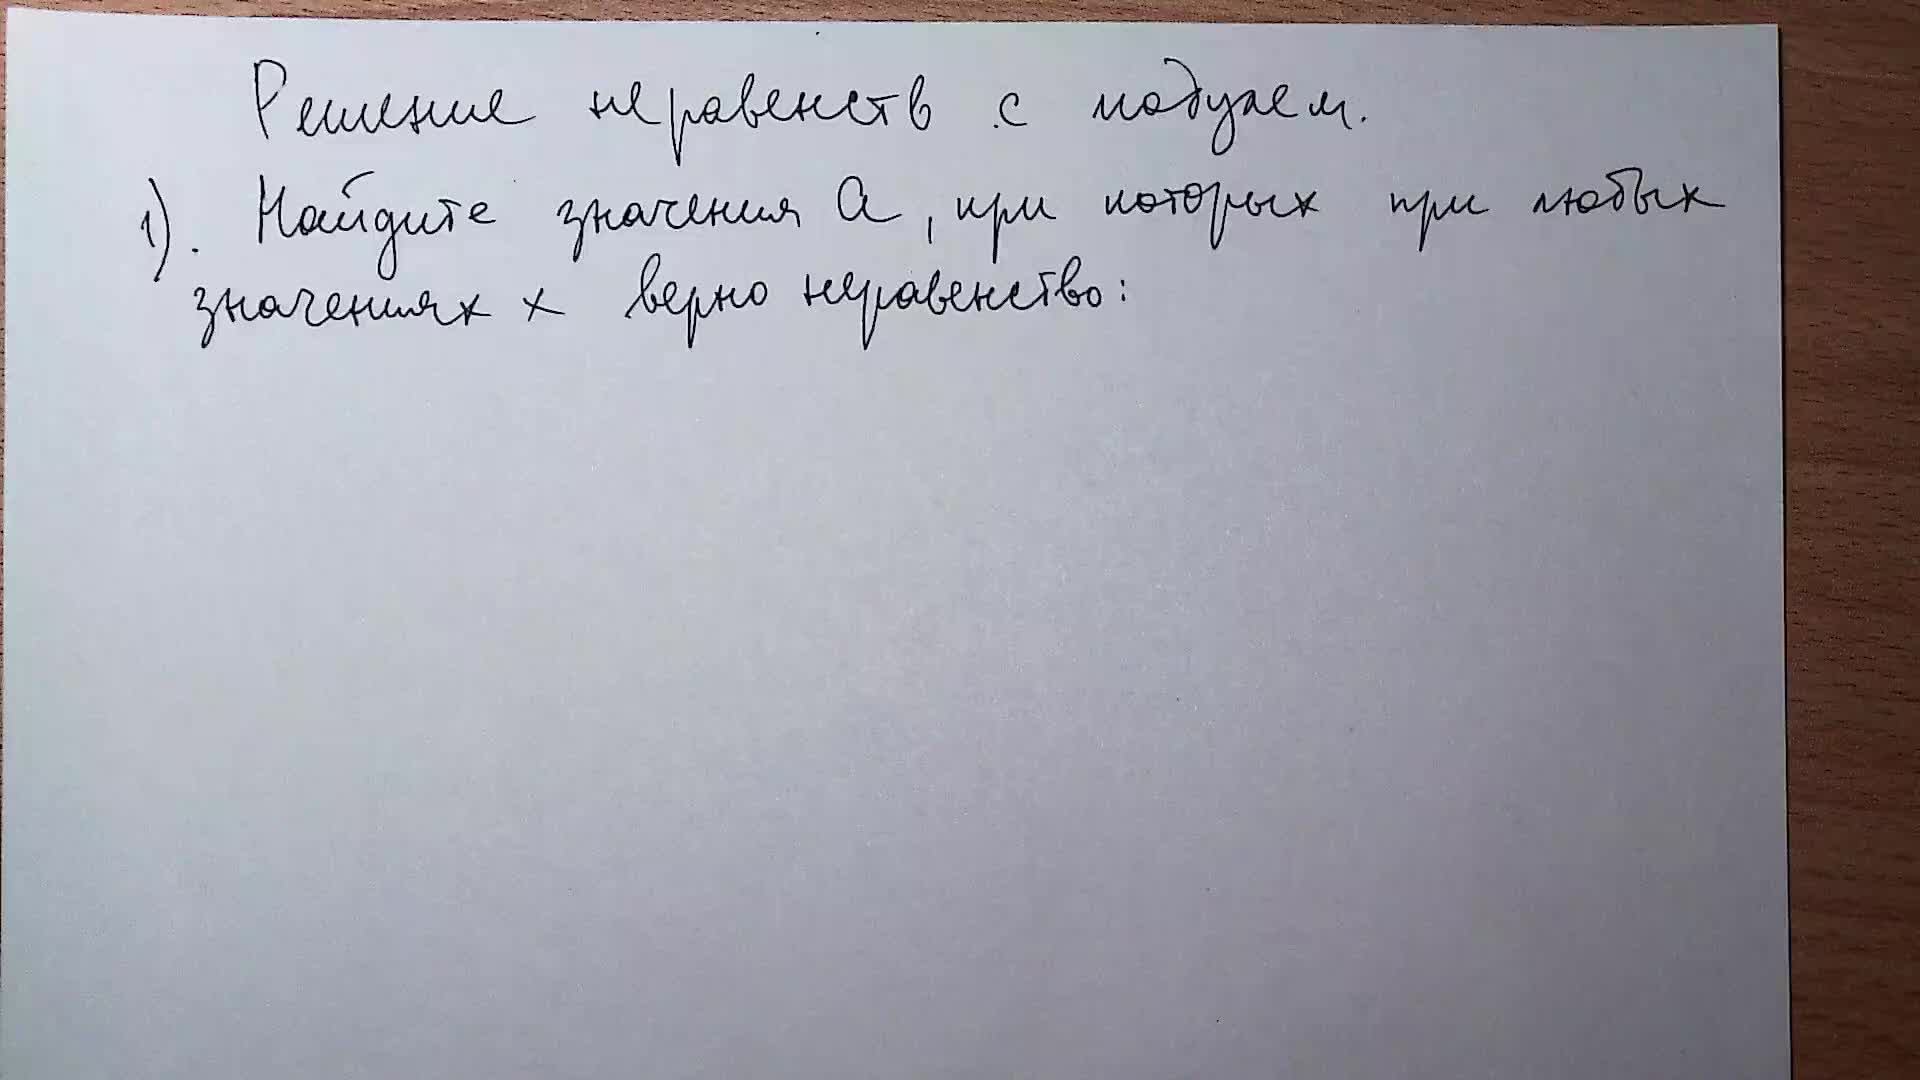 Решение неравенств с модулем.
1). Найдите значения a, при которых при любых
значениях x верно неравенство: